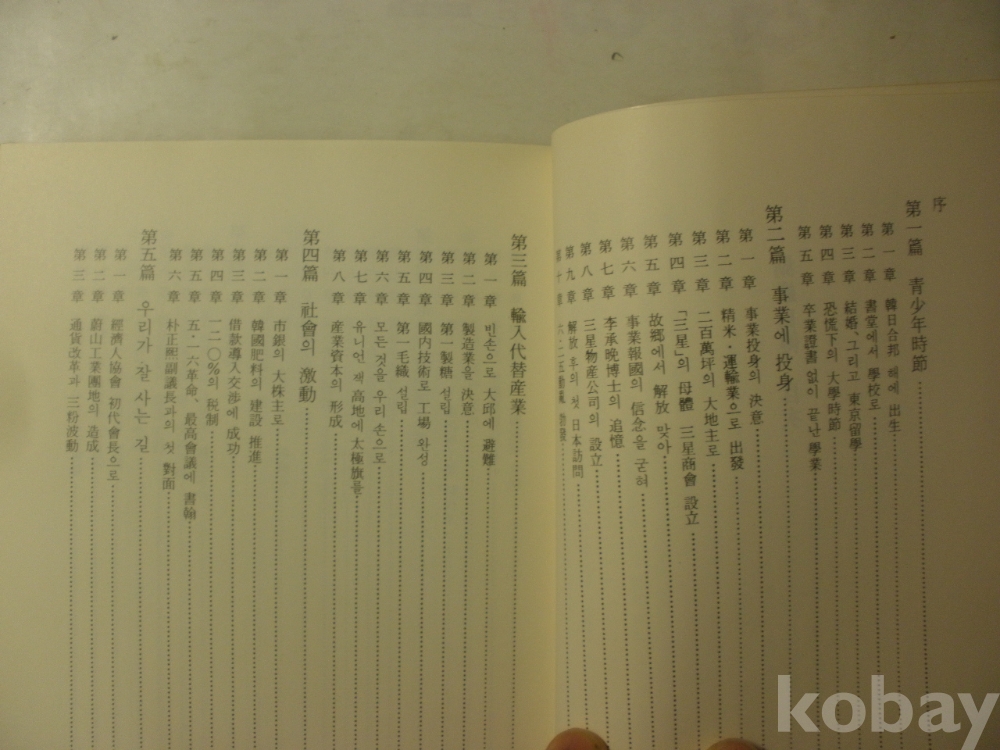 序
第一篇 青少年時節
第一章 韓日合邦 해에 出生
第二章 書堂에서 學校로
第三章 結婚、그리고 東京留學
第四章 恐慌下의 大學時節
第五章 卒業證書 없이 끝난 學業
第二篇 事業에 投身
第一章 事業投身의 決意
第二章 精米・運輸業으로 出發
第三章 二百萬坪의 大地主로
第四章 「三星」의 母體 三星商會 設立
第五章 故鄕에서 解放 맞아
第六章 事業報國의 信念을 굳혀
第七章 李承晩博士의 追憶
第八章 三星物産公司의 設立
第九章 解放 후의 첫 日本訪問
第十章 六・二五動亂 勃發
第三篇 輸入代替産業
第一章 빈손으로 大邱에 避難
第二章 製造業을 決意
第三章 第一製糖 설립
第四章 國內技術로 工場 완성
第五章 第一毛織 설립
第六章 모든것을 우리 손으로
第七章 유니언 잭 高地에 太極旗를
第八章 産業資本의 形成
第四篇 社會의 激動
第一章 市銀의 大株主로
第二章 韓國肥料의 建設 推進
第三章 借款導入交涉에 成功
第四章 一二〇%의 税制
第五章 五・一六革命、最高會議에 書翰
第六章 朴正熙副議長과의 첫 對面
第五篇 우리가 잘 사는 길
第一章 經濟人協會 初代會長으로
第二章 蔚山工業團地의 造成
第三章 通貨改革과 三粉波動
kobay